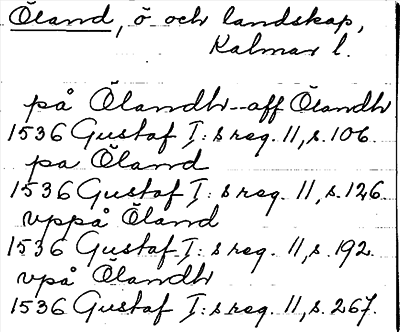 Öland, ö och landskap,
Kalmar l.
på Ölandh - aff Ölandh
1536 Gustaf I:s reg. 11, s. 106.
pa Öland
1536 Gustaf I:s reg. 11, s. 126.
vppå Öland
1536 Gustaf I:s reg. 11, s. 192.
vpå Ölandh
1536 Gustaf I:s reg. 11, s. 267.